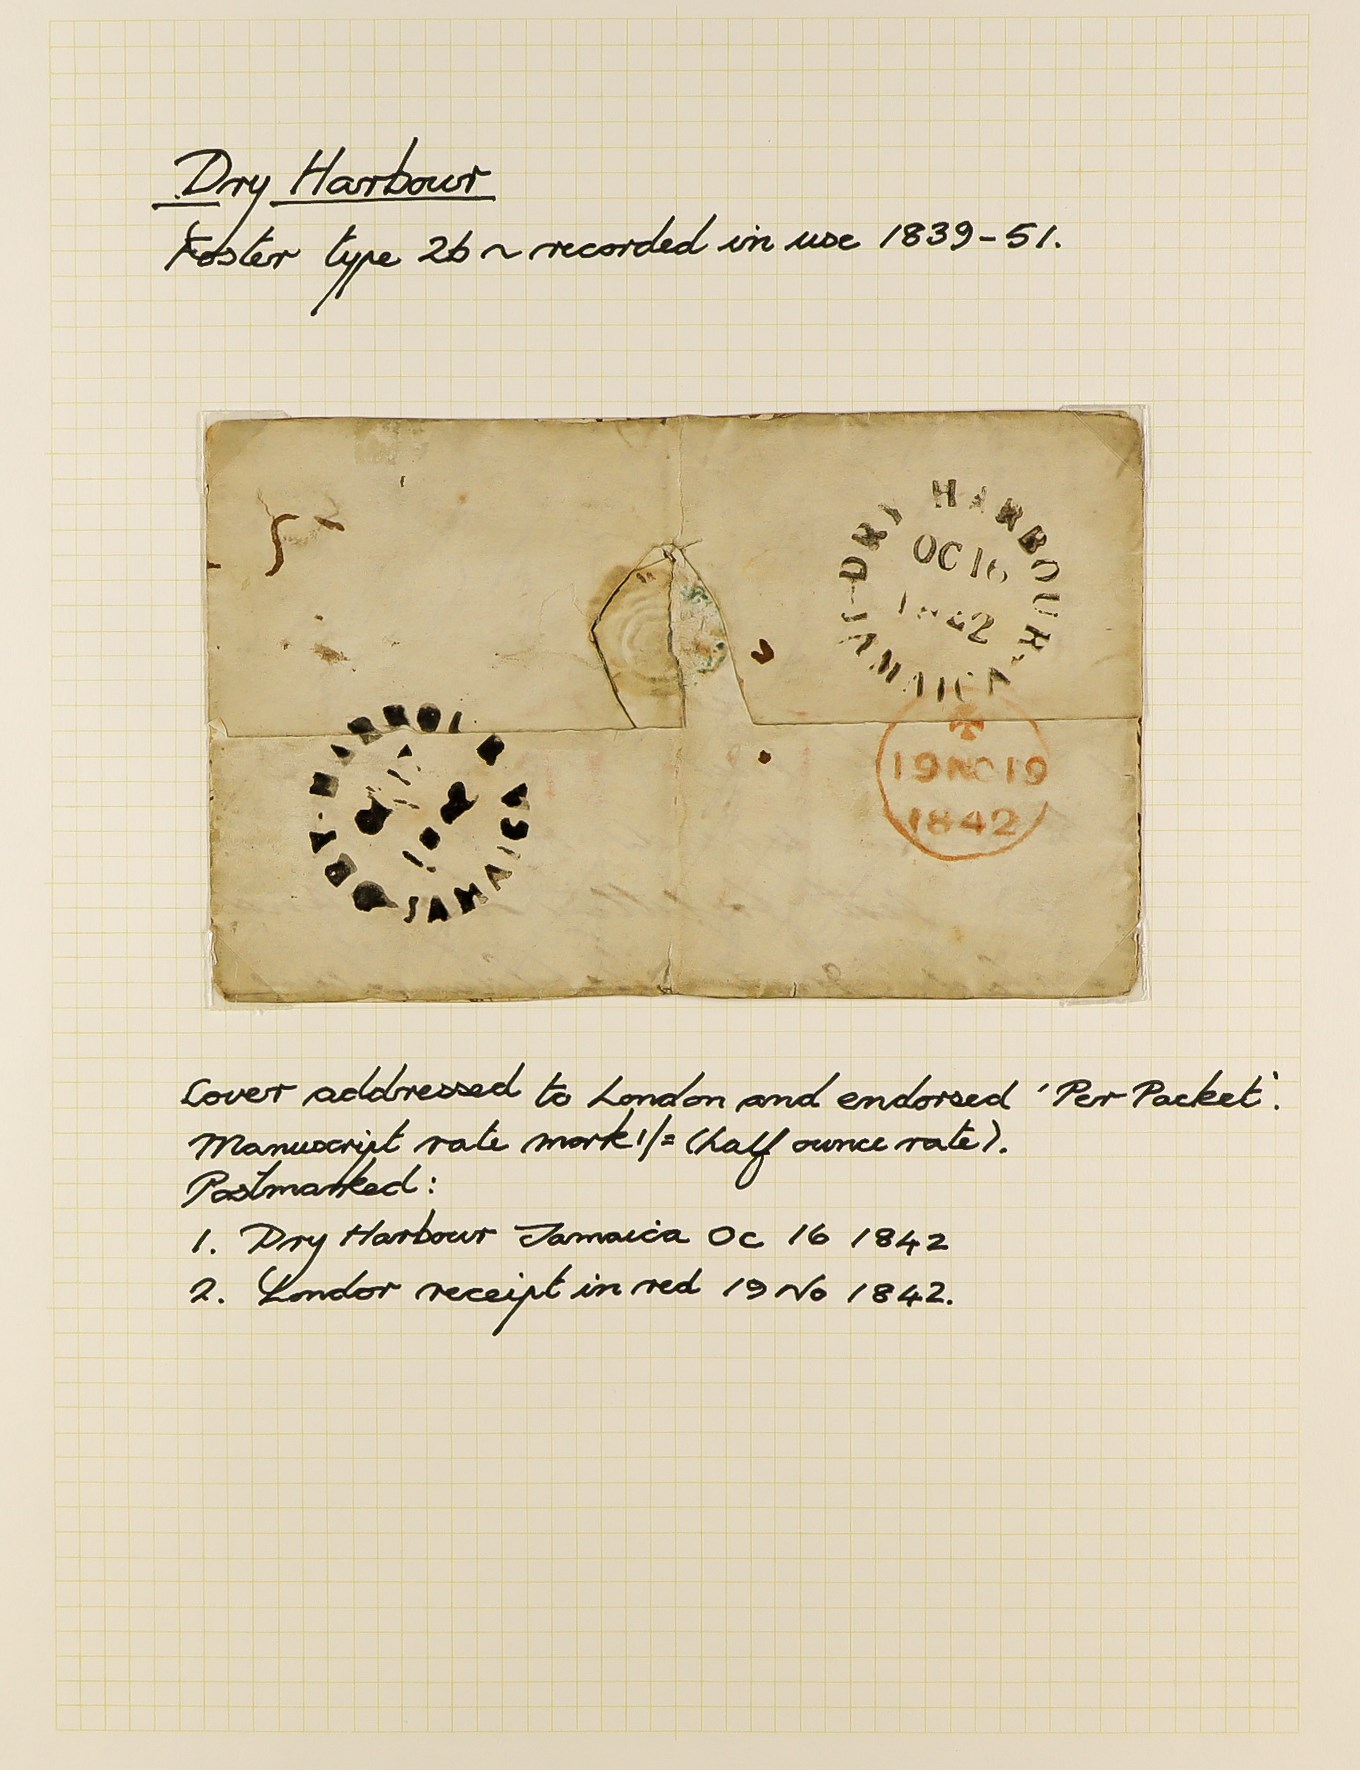 Dry Harbour
Foster type 2b ~ recorded in use 1839-51.
DRY HARBOUR
OC 16
1842
JAMAICA
19 NO 19
1842
JAMAICA
Cover addressed to London and endorsed 'Per Packet'.
Manuscript rate mark 1/= (half ounce rate).
Postmarked:
1. Dry Harbour Jamaica Oc 16 1842
2. London receipt in red 19 No 1842.